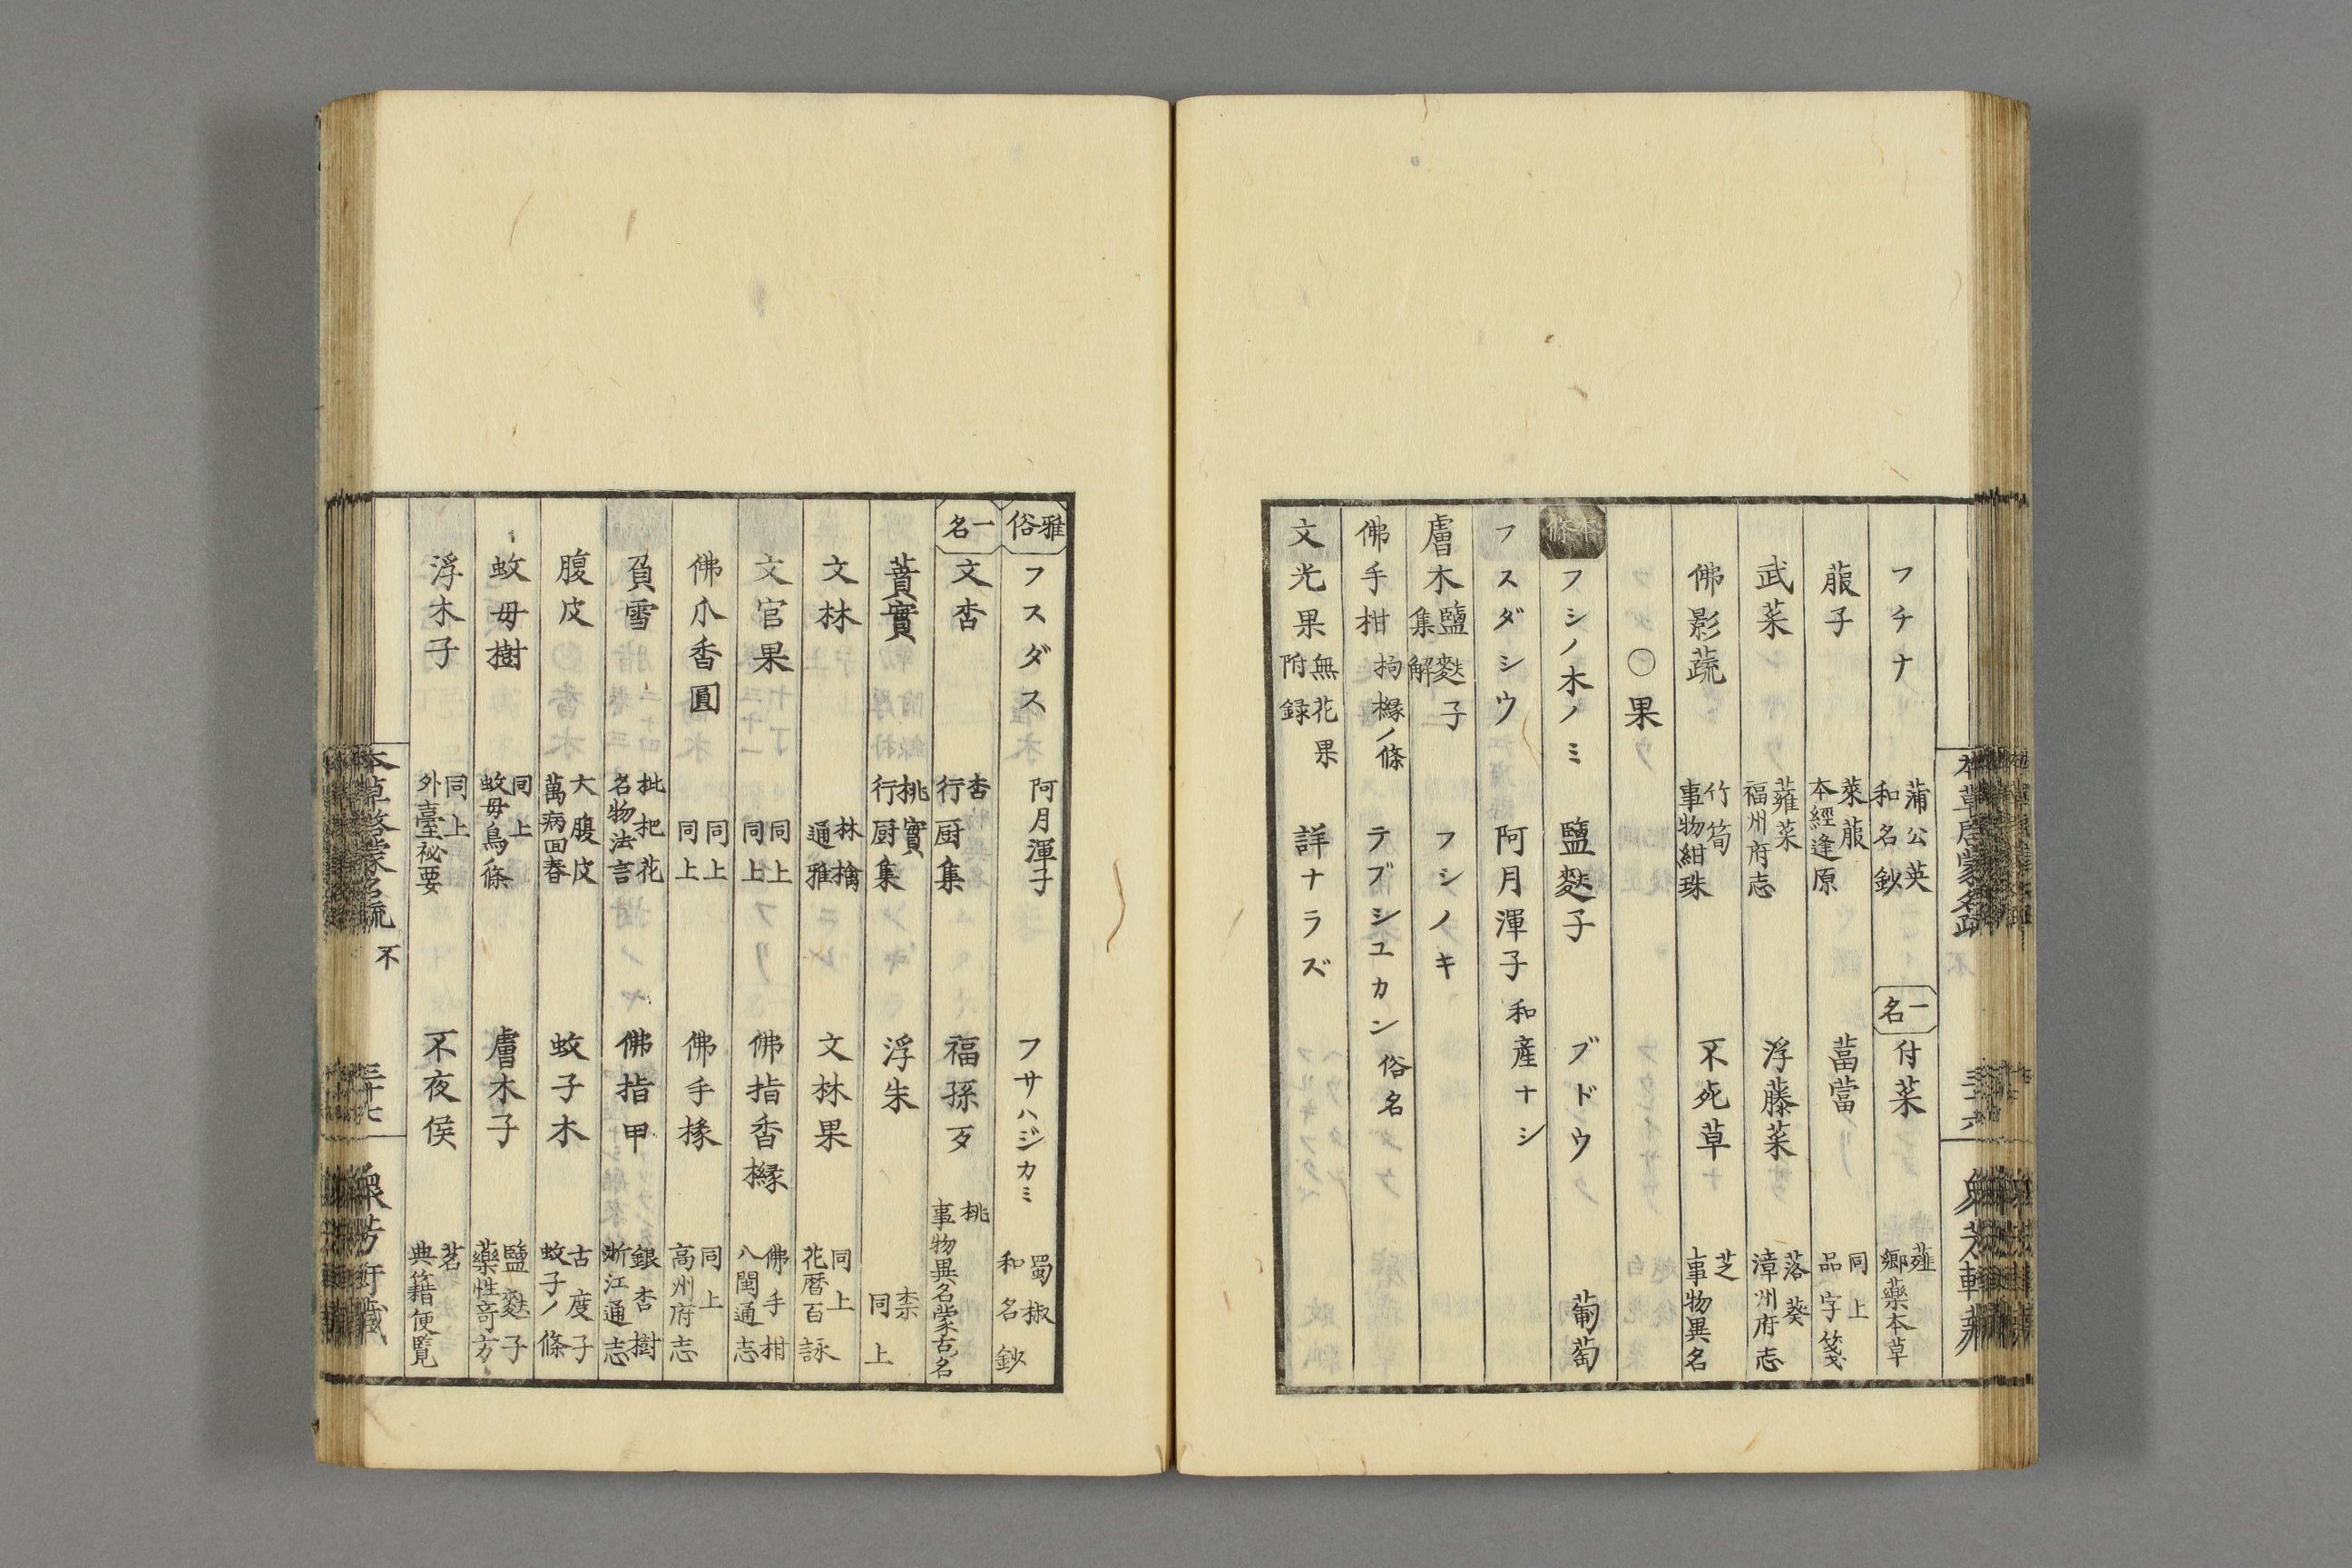 フチナ 蒲公英 和名鈔 一名 付菜 薤 鄕藥本草
菔子 萊菔 本經逢原 葍當 同上 品字箋
武菜 蕹菜 福州府志 浮藤菜 落葵 漳州府志
佛影蔬 竹筍 事物紺珠 不死草 芝 事物異名
〇果
本條 フシノ木ノミ 鹽麩子 ブドウ 葡萄
フスダシウ 阿月渾子 和産ナシ
膚木 鹽麩子 集解 フシノキ
佛手柑 枸櫞ノ條 テブシユカン 俗名
文光果 無花果 附録 詳ナラズ
雅俗 フスダス 阿月渾子 フサハジカミ 蜀椒 和名鈔
一名 文杏 杏 行厨集 福孫歹 桃 事物異名蒙古名
蕡實 桃實 行厨集 浮朱 柰 同上
文林 林檎 通雅 文林果 同上 花暦百詠
文官果 同上 同上 佛指香櫞 佛手柑 八閩通志
佛爪香圓 同上 同上 佛手櫞 同上 高州府志
負雪 枇杷花 名物法言 佛指甲 銀杏樹 浙江通志
腹皮 大腹皮 萬病回春 蚊子木 古度子 蚊子ノ條
蚊母樹 同上 蚊母鳥條 膚木子 鹽麩子 藥性奇方
浮木子 同上 外臺祕要 不夜侯 茗 典籍便覧
本草啓蒙名疏 不 三十七